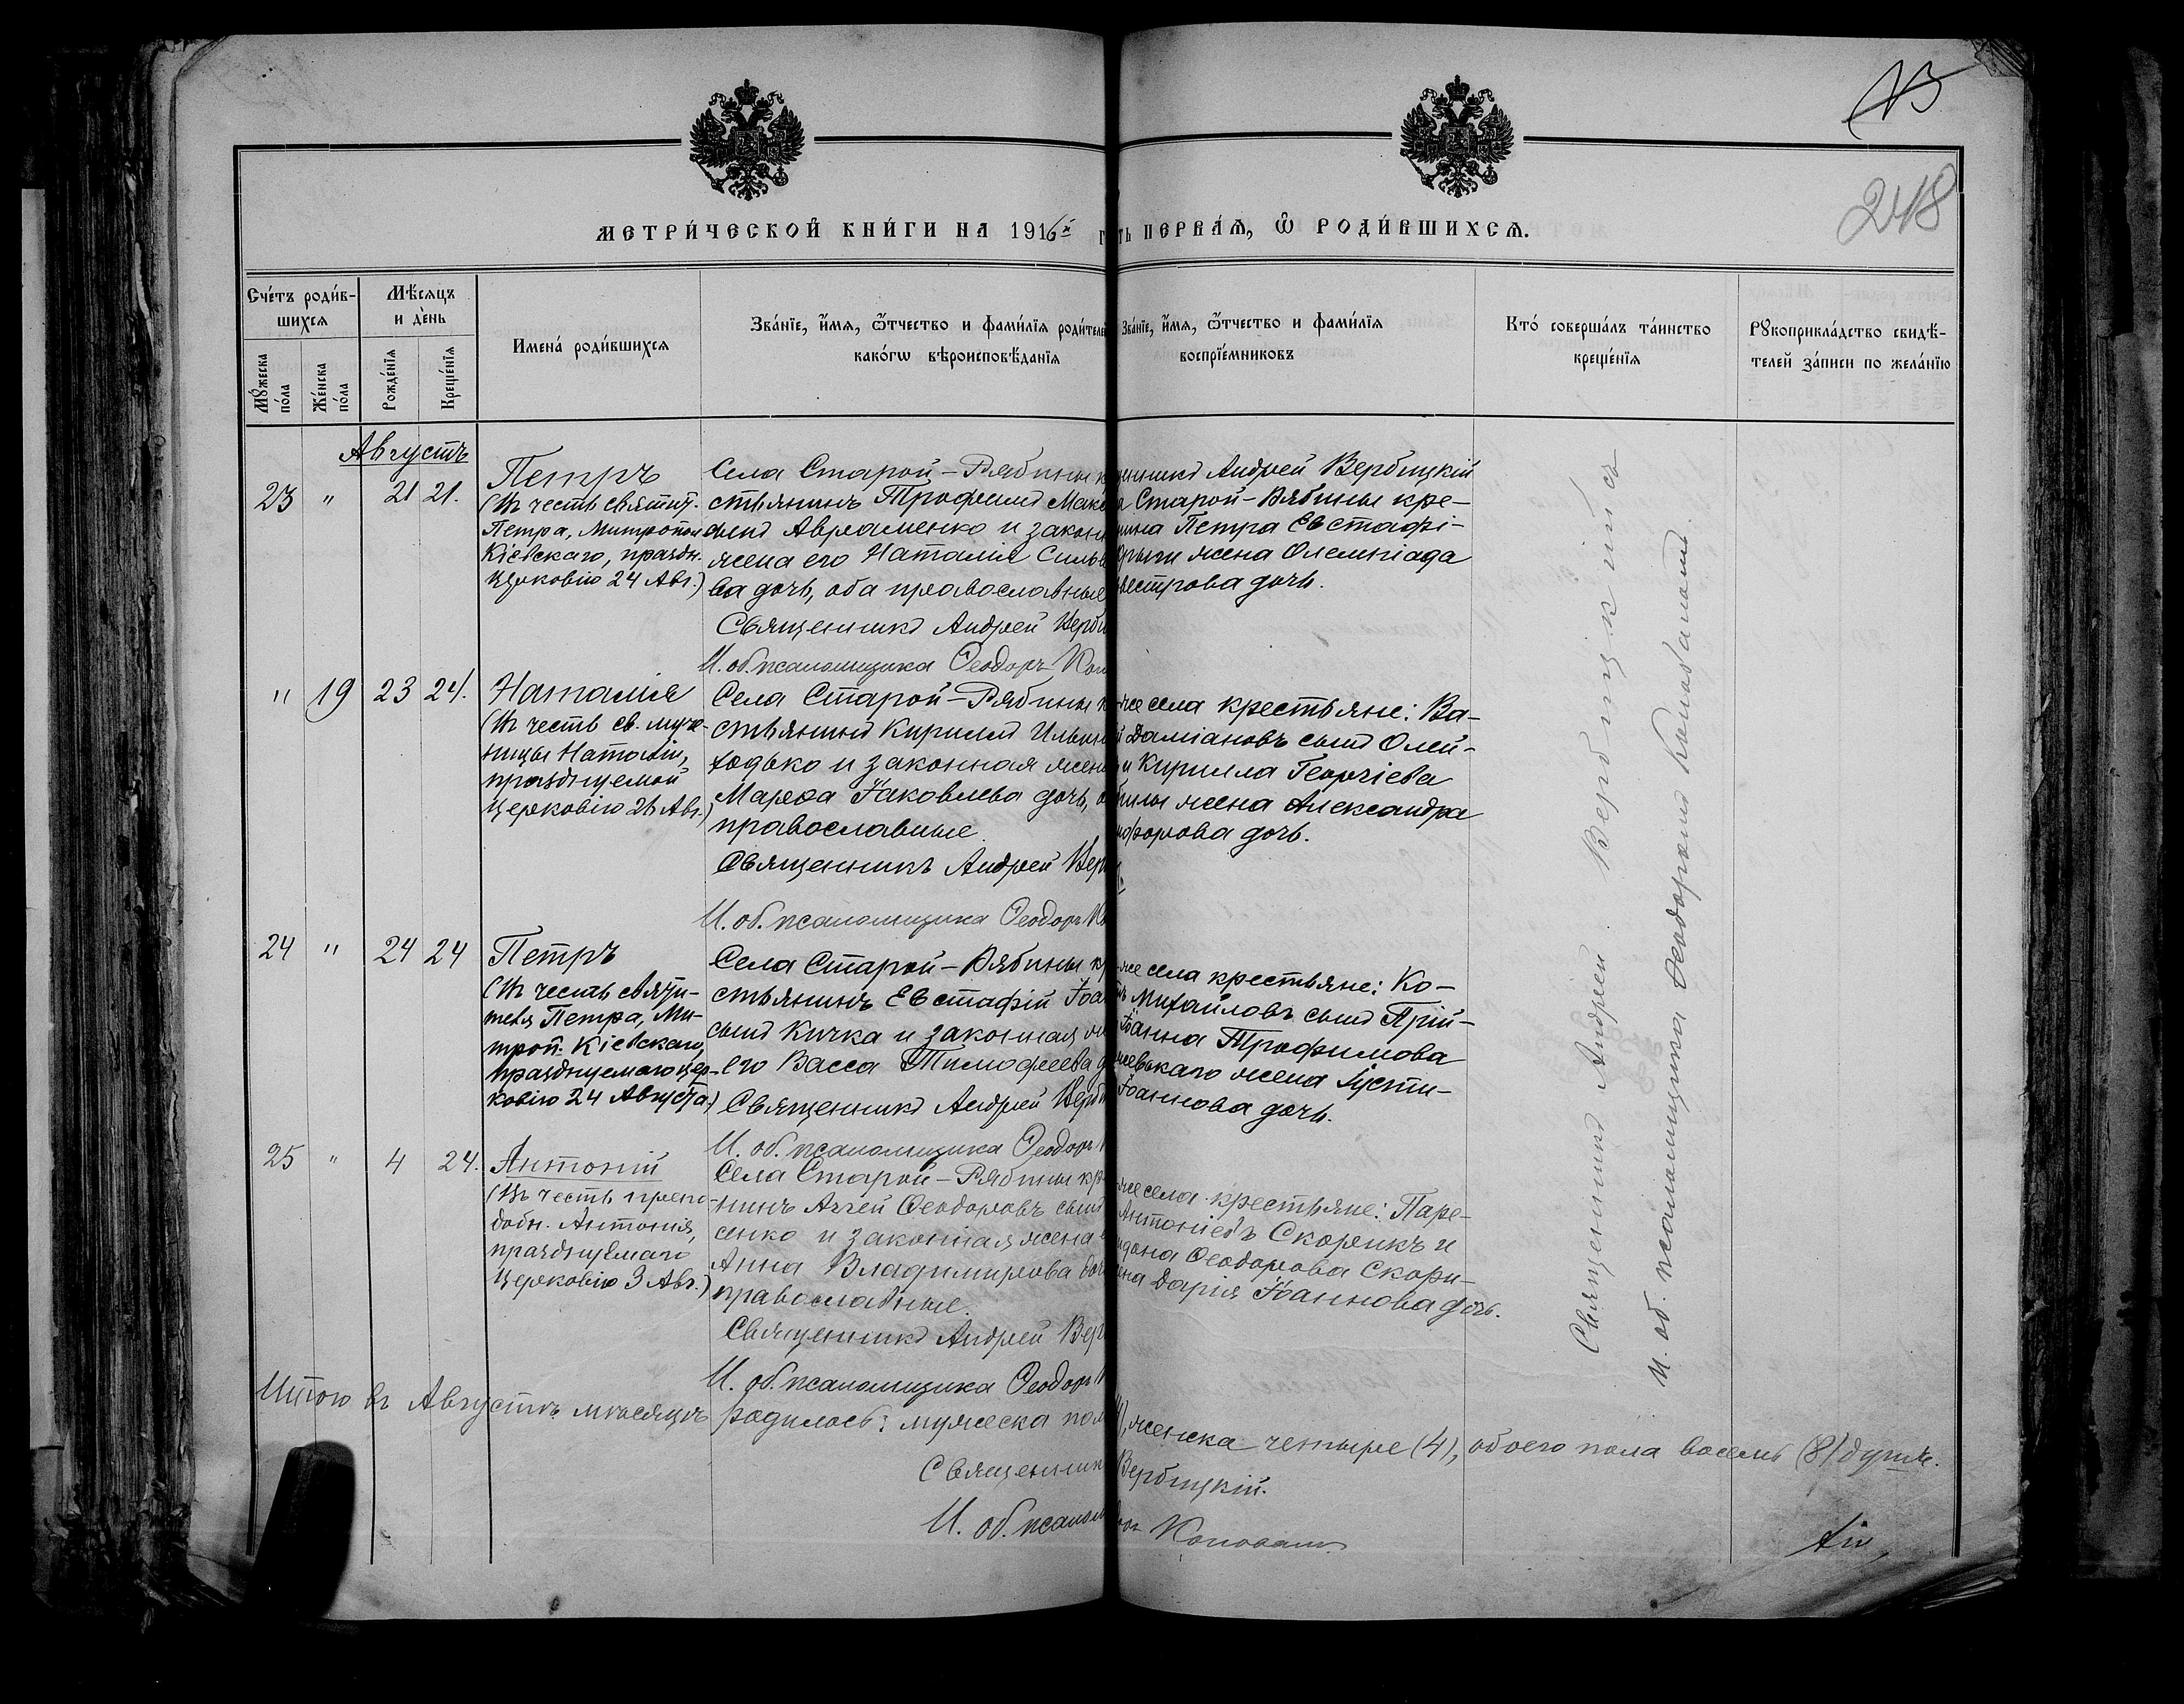 13
248
МЕТРИ́ЧЕСКОЙ КНИ́ГИ НА 1916й г
ть ПЕРВА́Ѧ, Ѽ РОДИ́ВШИХСѦ.
Сче́тъ роди́в-
шихсѧ
Мꙋ́жеска
по́ла
Же́нска
по́ла
Мѣ́сѧцъ
и де́нь
Рожде́нїѧ
Креще́нїѧ
Имена̀ роди́вшихсѧ
Зва́нїе, и҆́мѧ, ѻ҆́тчество и фами́лїѧ роди́теле
како́гѡ вѣроисповѣ́данїѧ
Зва́нїе, и҆́мѧ, ѻ҆́тчество и фами́лїѧ
воспрїе́мниковъ
Кто̀ соверша́лъ та́инство
креще́нїѧ
Рꙋкоприкла́дство свидѣ́-
телей за́писи по жела́нїю
Августъ
23 " 21 21.
Петръ
(Въ честь святит.
Петра, Митропол.
Кіевскаго, праздн.
церковію 24 Авг.)
Села Старой-Рябины к
стьянинъ Трофимъ Мака
сынъ Авраменко и закон
жена его Наталія Сильв
ва дочь, оба православные
Священникъ Андрей Верби
И. об. псаломщика Ѳеодоръ Кон
щенникъ Андрей Вербицкій
Старой-Рябины кре-
нина Петра Евстафі-
жена Олемпіада
естрова дочь.
" 19 23 24.
Наталія
(Въ честь св. муче-
ницы Наталіи,
празднуемой
церковію 26 Авг.)
Села Старой-Рябины к
стьянинъ Кириллъ Ильин
Ходько и законная жена
Марѳа Іаковлева дочь, о
православные.
Священникъ Андрей Вер
И. об. псаломщика Ѳеодоръ Ко
же села крестьяне: Ва-
й Даміановъ сынъ Олей-
и Кирилла Георгіева
жена Александра
ифорова дочь.
24 " 24 24
Петръ
(Въ честь святи-
теля Петра, Ми-
троп. Кіевскаго,
празднуемаго цер-
ковію 24 Августа.)
Села Старой-Рябины кр
стьянинъ Евстафій Іоан
сынъ Кичка и законная ж
его Васса Тимофеева д
Священникъ Андрей Верби
И. об. псаломщика Ѳеодоръ К
же села крестьяне: Ко-
Михайловъ сынъ Прій-
Іоанна Трофимова
жена Іусти-
Іоаннова дочь.
25 " 4 24.
Антоній
(Въ честь препо-
добн. Антонія,
празднуемаго
церковію 3 Авг.)
Села Старой-Рябины кр
нинъ Аггей Ѳеодоровъ сынъ
сенко и законная жена е
Анна Владимирова доч
православные.
Священникъ Андрей Верб
И. об. псаломщика Ѳеодоръ К
же села крестьяне: Паре-
Антоніевъ Скорикъ и
Ѳеодорова Скори-
ена Дарія Іоаннова дочь.
Священникъ Андрей Вербицкій съ
и. об. псаломщика Ѳеодоромъ Коноваломъ.
Итого въ Августѣ мѣсяцѣ родилось: мужеска пол
4), женска четыре (4), обоего пола восемь (8) душъ.
Священник
Вербицкій.
И. об. псалом
Коновалъ